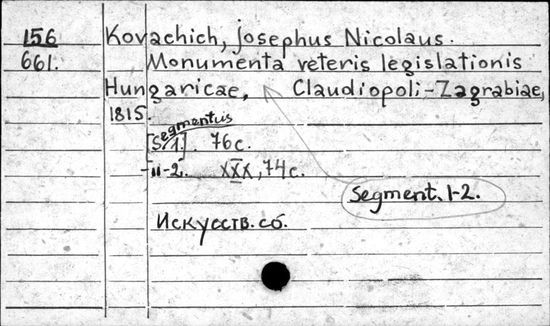 156 Kovachich, Josephus Nicolaus.
661. Monumenta veteris legislationis
Hungaricae, Claudiopoli-Zagrabiae,
1815.
Segmentus
[S. 1.]. 76 с.
-"-2. XXX, 74 с.
Segment. 1-2.
Искусств. сб.